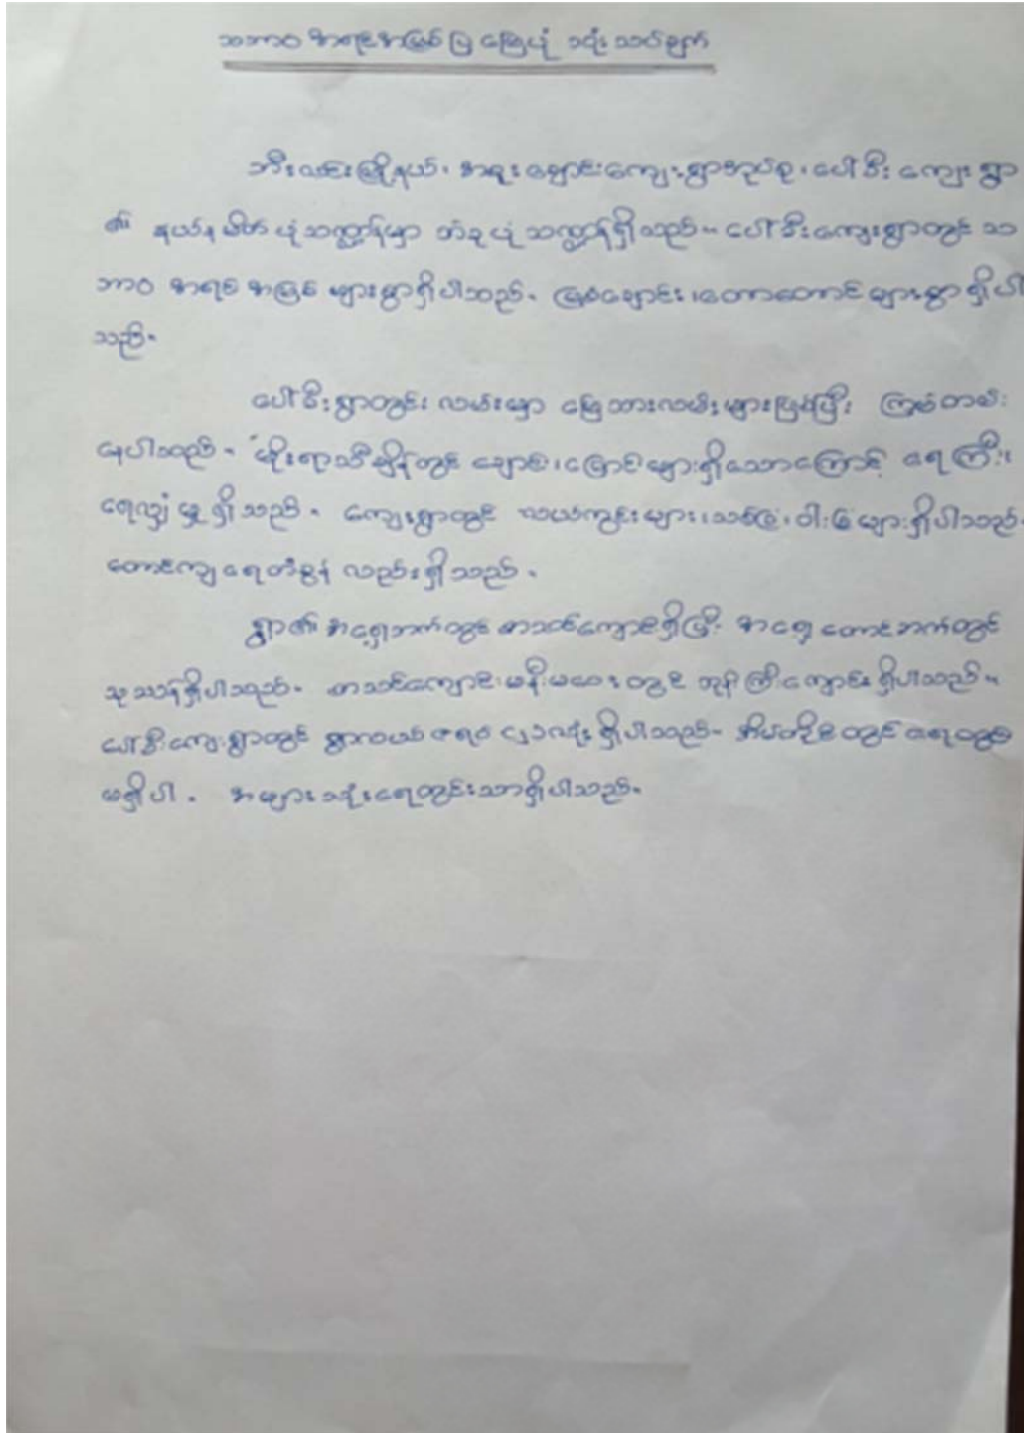 သဘာဝ အရင်းအမြစ်ပြ မြေပုံ သုံးသပ်ချက်
ဘီးလင်းမြို့နယ်၊ အရူးချောင်းကျေးရွာအုပ်စု၊ ပေါ်စီးကျေးရွာ
၏ နယ်နမိတ်ပုံသဏ္ဍာန်မှာ ဘဲဥပုံသဏ္ဍာန်ရှိသည်။ ပေါ်စီးကျေးရွာတွင် သ
ဘာဝ အရင်းအမြစ် များစွာရှိပါသည်။ မြစ်ချောင်း၊ တောတောင်များစွာ ရှိပါ
သည်။
ပေါ်စီးရွာတွင်း လမ်းမှာ မြေသားလမ်းများဖြစ်ပြီး ကြမ်းတမ်း
နေပါသည်။ မိုးရာသီချိန်တွင် ချောင်း၊ မြောင်းများရှိသောကြောင့် ရေကြီး၊
ရေလျှံမှု ရှိသည်။ ကျေးရွာတွင် လယ်ကွင်းများ၊ သစ်ခြံ၊ ဝါးခြံများရှိပါသည်။
တောင်ကျရေတံခွန် လည်းရှိသည်။
ရွာ၏ အရှေ့ဘက်တွင် စာသင်ကျောင်းရှိပြီး အရှေ့တောင်ဘက်တွင်
သုသာန်ရှိပါသည်။ စာသင်ကျောင်းမနီးမဝေးတွင် ဘုန်းကြီးကျောင်းရှိပါသည်။
ပေါ်စီးကျေးရွာတွင် ရွာလယ်ဇရပ် ၎ခုလုံးရှိပါသည်။ အိမ်တိုင်းတွင် ရေတွင်း
မရှိပါ။ အများသုံးရေတွင်းသာရှိပါသည်။